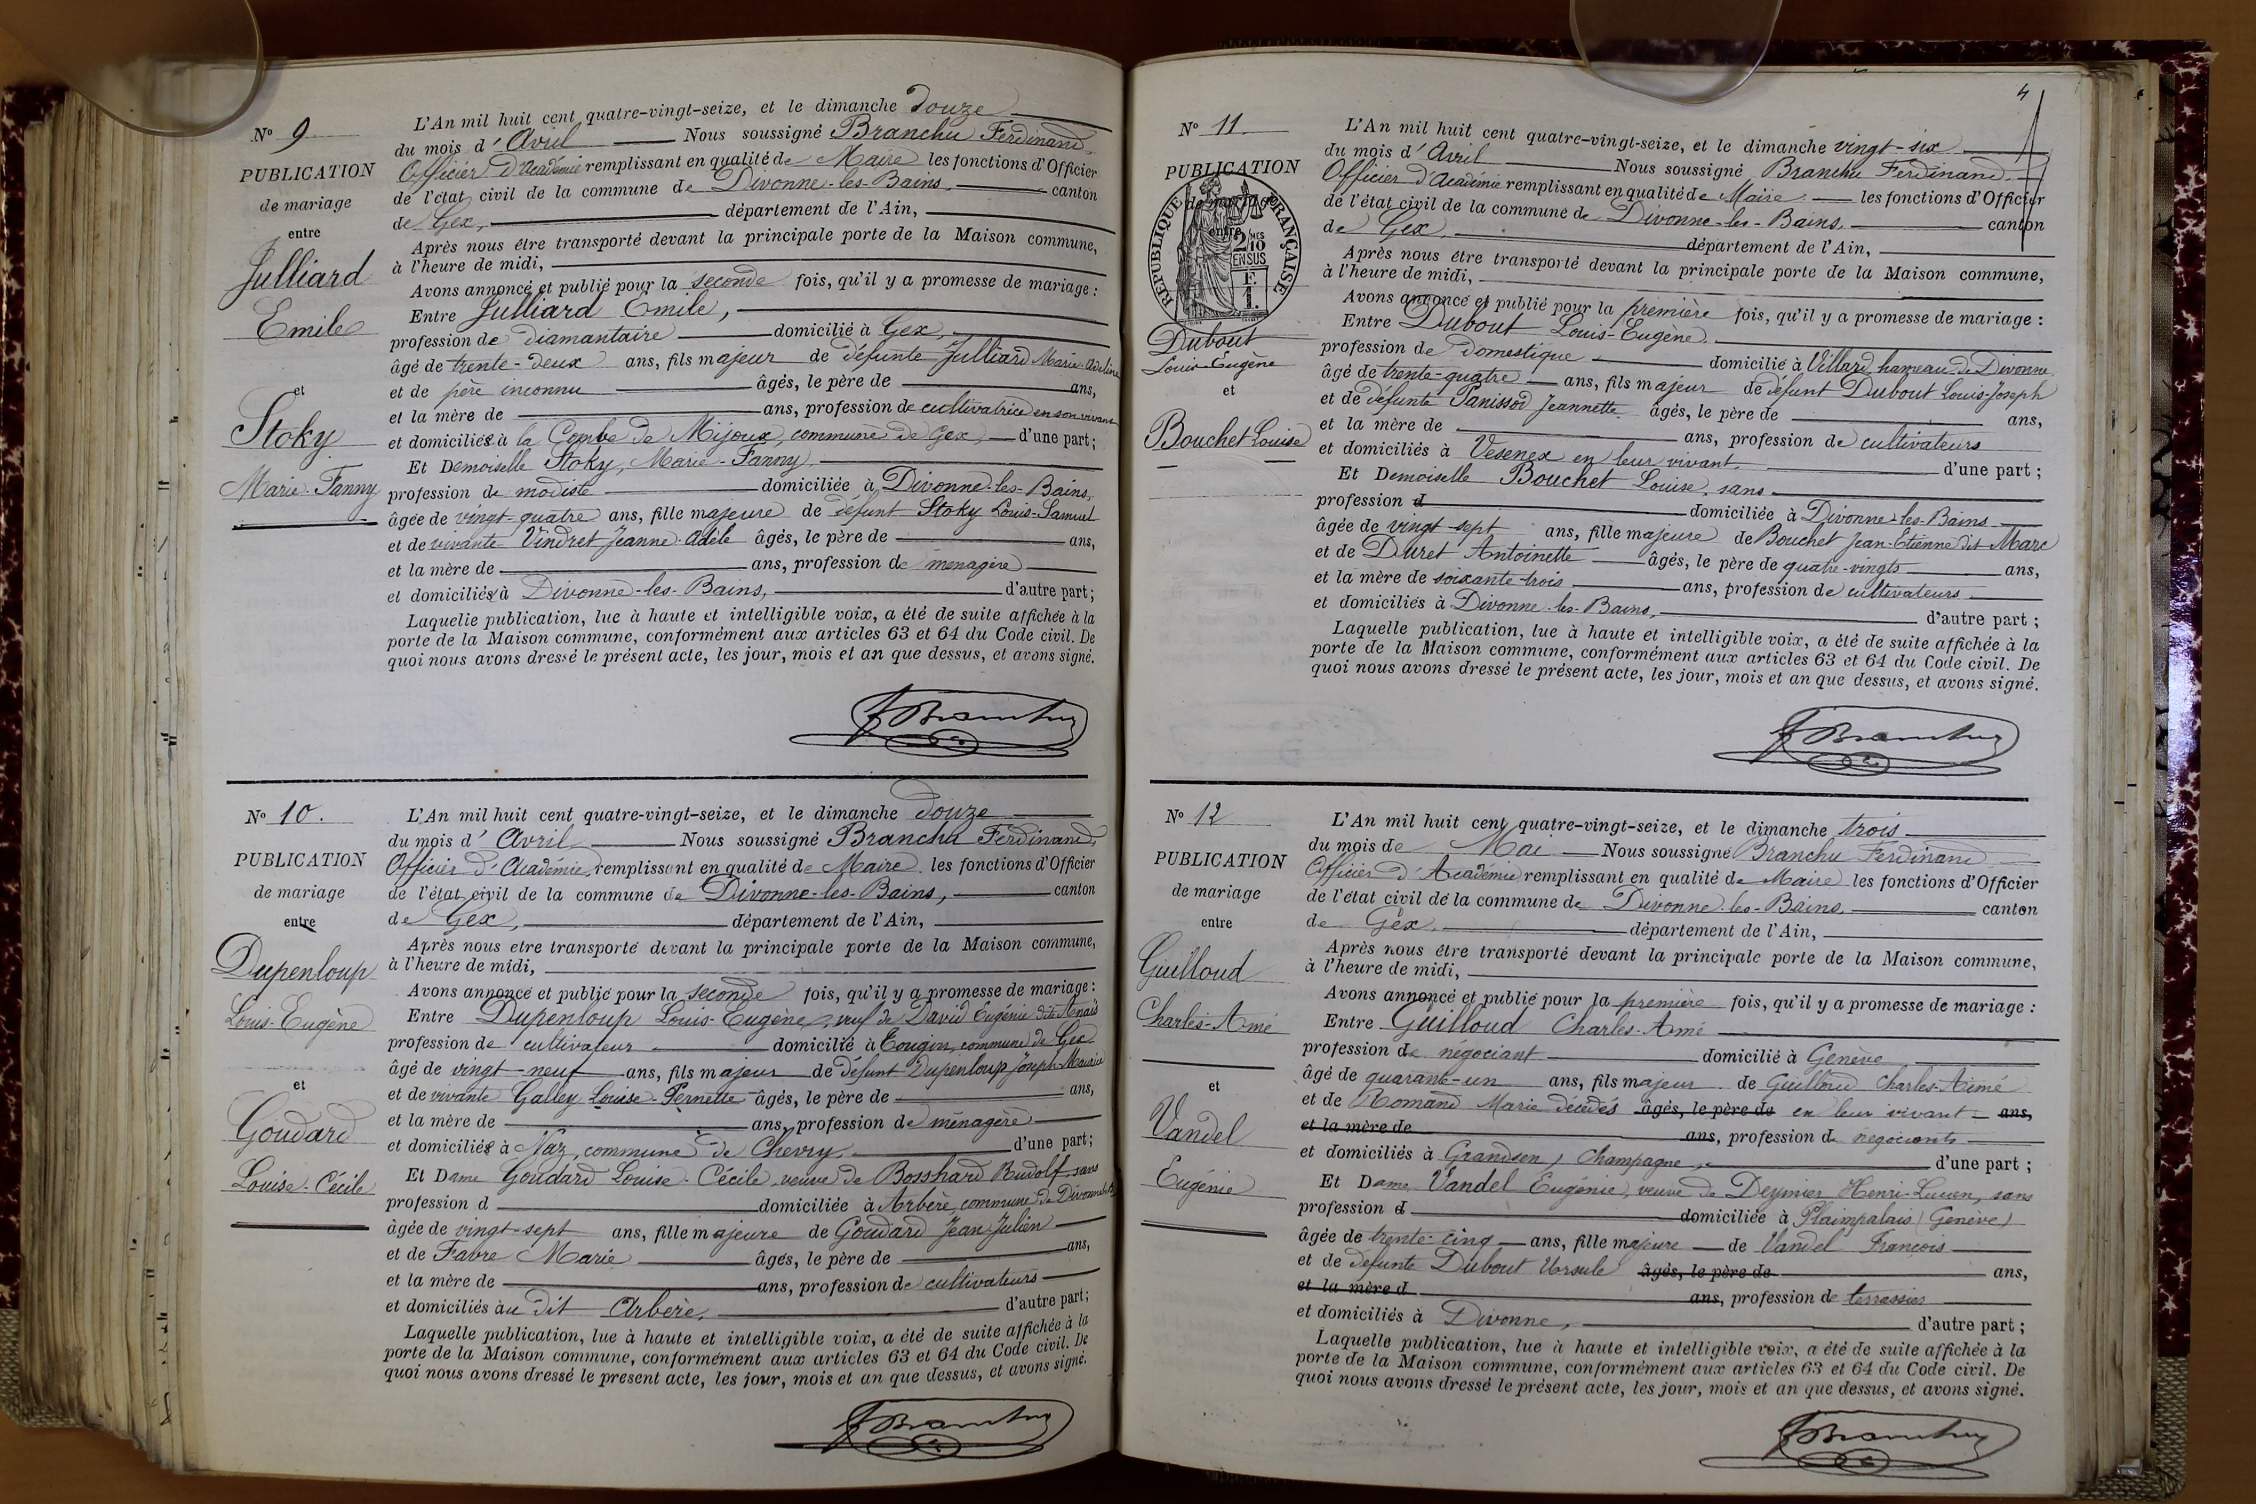 N° 9
PUBLICATION
de mariage
entre
Julliard
Emile
et
Stoky
Marie-Fanny
L'An mil huit cent quatre-vingt-seize, et le dimanche douze
du mois d'Avril Nous soussigné Branchu Ferdinand,
Officier d'Académie remplissant en qualité de Maire les fonctions d'Officier
de l'état civil de la commune de Divonne-les-Bains, canton
de Gex, département de l'Ain,
Après nous être transporté devant la principale porte de la Maison commune,
à l'heure de midi,
Avons annoncé et publié pour la seconde fois, qu'il y a promesse de mariage :
Entre Julliard Emile,
profession de diamantaire domicilié à Gex,
âgé de trente-deux ans, fils majeur de défunte Julliard Marie-Adeline
et de père inconnu âgés, le père de ans,
et la mère de ans, profession de cultivatrice en son vivant
et domiciliés à la Combe de Mijoux, commune de Gex, d'une part;
Et Demoiselle Stoky, Marie-Fanny,
profession de modiste domiciliée à Divonne-les-Bains,
âgée de vingt-quatre ans, fille majeure de défunt Stoky Louis-Samuel
et de vivante Vindret Jeanne-Adèle âgés, le père de ans,
et la mère de ans, profession de ménagère
et domiciliés à Divonne-les-Bains, d'autre part;
Laquelle publication, lue à haute et intelligible voix, a été de suite affichée à la
porte de la Maison commune, conformément aux articles 63 et 64 du Code civil. De
quoi nous avons dressé le présent acte, les jour, mois et an que dessus, et avons signé.
F Branchu
N° 10.
PUBLICATION
de mariage
entre
Dupenloup
Louis-Eugène
et
Goudard
Louise-Cécile
L'An mil huit cent quatre-vingt-seize, et le dimanche douze
du mois d'Avril Nous soussigné Branchu Ferdinand,
Officier d'Académie, remplissant en qualité de Maire les fonctions d'Officier
de l'état civil de la commune de Divonne-les-Bains, canton
de Gex, département de l'Ain,
Après nous être transporté devant la principale porte de la Maison commune,
à l'heure de midi,
Avons annoncé et publié pour la seconde fois, qu'il y a promesse de mariage :
Entre Dupenloup Louis-Eugène, veuf de David Eugénie dite Anaïs
profession de cultivateur domicilié à Tougin, commune de Gex
âgé de vingt-neuf ans, fils majeur de défunt Dupenloup Joseph-Maurice
et de vivante Galley Louise-Pernette âgés, le père de ans,
et la mère de ans, profession de ménagère
et domiciliés à Naz, commune de Chevry, d'une part;
Et Dame Goudard Louise-Cécile, veuve de Bosshard Rudolf, sans
profession d domiciliée à Arbère, commune de Divonne
âgée de vingt-sept ans, fille majeure de Goudard Jean-Julien
et de Favre Marie âgés, le père de ans,
et la mère de ans, profession de cultivateurs
et domiciliés àu dit Arbère, d'autre part;
Laquelle publication, lue à haute et intelligible voix, a été de suite affichée à la
porte de la Maison commune, conformément aux articles 63 et 64 du Code civil. De
quoi nous avons dressé le présent acte, les jour, mois et an que dessus, et avons signé.
F Branchu
4
N° 11
PUBLICATION
de mariage
entre
RÉPUBLIQUE FRANÇAISE
2/10 MES
EN SUS
F.
1.
Dubout
Louis-Eugène
et
Bouchet Louise
L'An mil huit cent quatre-vingt-seize, et le dimanche vingt-six
du mois d'Avril Nous soussigné Branchu Ferdinand,
Officier d'Académie remplissant en qualité de Maire les fonctions d'Officier
de l'état civil de la commune de Divonne-les-Bains, canton
de Gex, département de l'Ain,
Après nous être transporté devant la principale porte de la Maison commune,
à l'heure de midi,
Avons annoncé et publié pour la première fois, qu'il y a promesse de mariage :
Entre Dubout Louis-Eugène
profession de domestique domicilié à Villard, hameau de Divonne,
âgé de trente-quatre ans, fils majeur de défunt Dubout Louis-Joseph
et de défunte Panissod Jeannette âgés, le père de ans,
et la mère de ans, profession de cultivateurs
et domiciliés à Vesenex en leur vivant, d'une part ;
Et Demoiselle Bouchet Louise, sans
profession d domiciliée à Divonne-les-Bains
âgée de vingt-sept ans, fille majeure de Bouchet Jean-Etienne dit Marc
et de Duret Antoinette âgés, le père de quatre-vingts ans,
et la mère de soixante-trois ans, profession de cultivateurs
et domiciliés à Divonne-les-Bains, d'autre part ;
Laquelle publication, lue à haute et intelligible voix, a été de suite affichée à la
porte de la Maison commune, conformément aux articles 63 et 64 du Code civil. De
quoi nous avons dressé le présent acte, les jour, mois et an que dessus, et avons signé.
F Branchu
N° 12
PUBLICATION
de mariage
entre
Guilloud
Charles-Aimé
et
Vandel
Eugénie
L'An mil huit cent quatre-vingt-seize, et le dimanche trois
du mois de Mai Nous soussigné Branchu Ferdinand
Officier d'Académie remplissant en qualité de Maire les fonctions d'Officier
de l'état civil de la commune de Divonne-les-Bains, canton
de Gex, département de l'Ain,
Après nous être transporté devant la principale porte de la Maison commune,
à l'heure de midi,
Avons annoncé et publié pour la première fois, qu'il y a promesse de mariage :
Entre Guilloud Charles-Aimé
profession de négociant domicilié à Genève
âgé de quarante-un ans, fils majeur de Guilloud Charles-Aimé
et de Romand Marie décédés âgés, le père de en leur vivant ans,
et la mère de ans, profession de négociants
et domiciliés à Grandson, Champagne, d'une part ;
Et Dame Vandel Eugénie, veuve de Deymier Henri-Lucien, sans
profession d domiciliée à Plainpalais (Genève)
âgée de trente-cinq ans, fille majeure de Vandel François
et de défunte Dubout Ursule âgés, le père de ans,
et la mère d ans, profession de terrassier
et domiciliés à Divonne, d'autre part ;
Laquelle publication, lue à haute et intelligible voix, a été de suite affichée à la
porte de la Maison commune, conformément aux articles 63 et 64 du Code civil. De
quoi nous avons dressé le présent acte, les jour, mois et an que dessus, et avons signé.
F Branchu